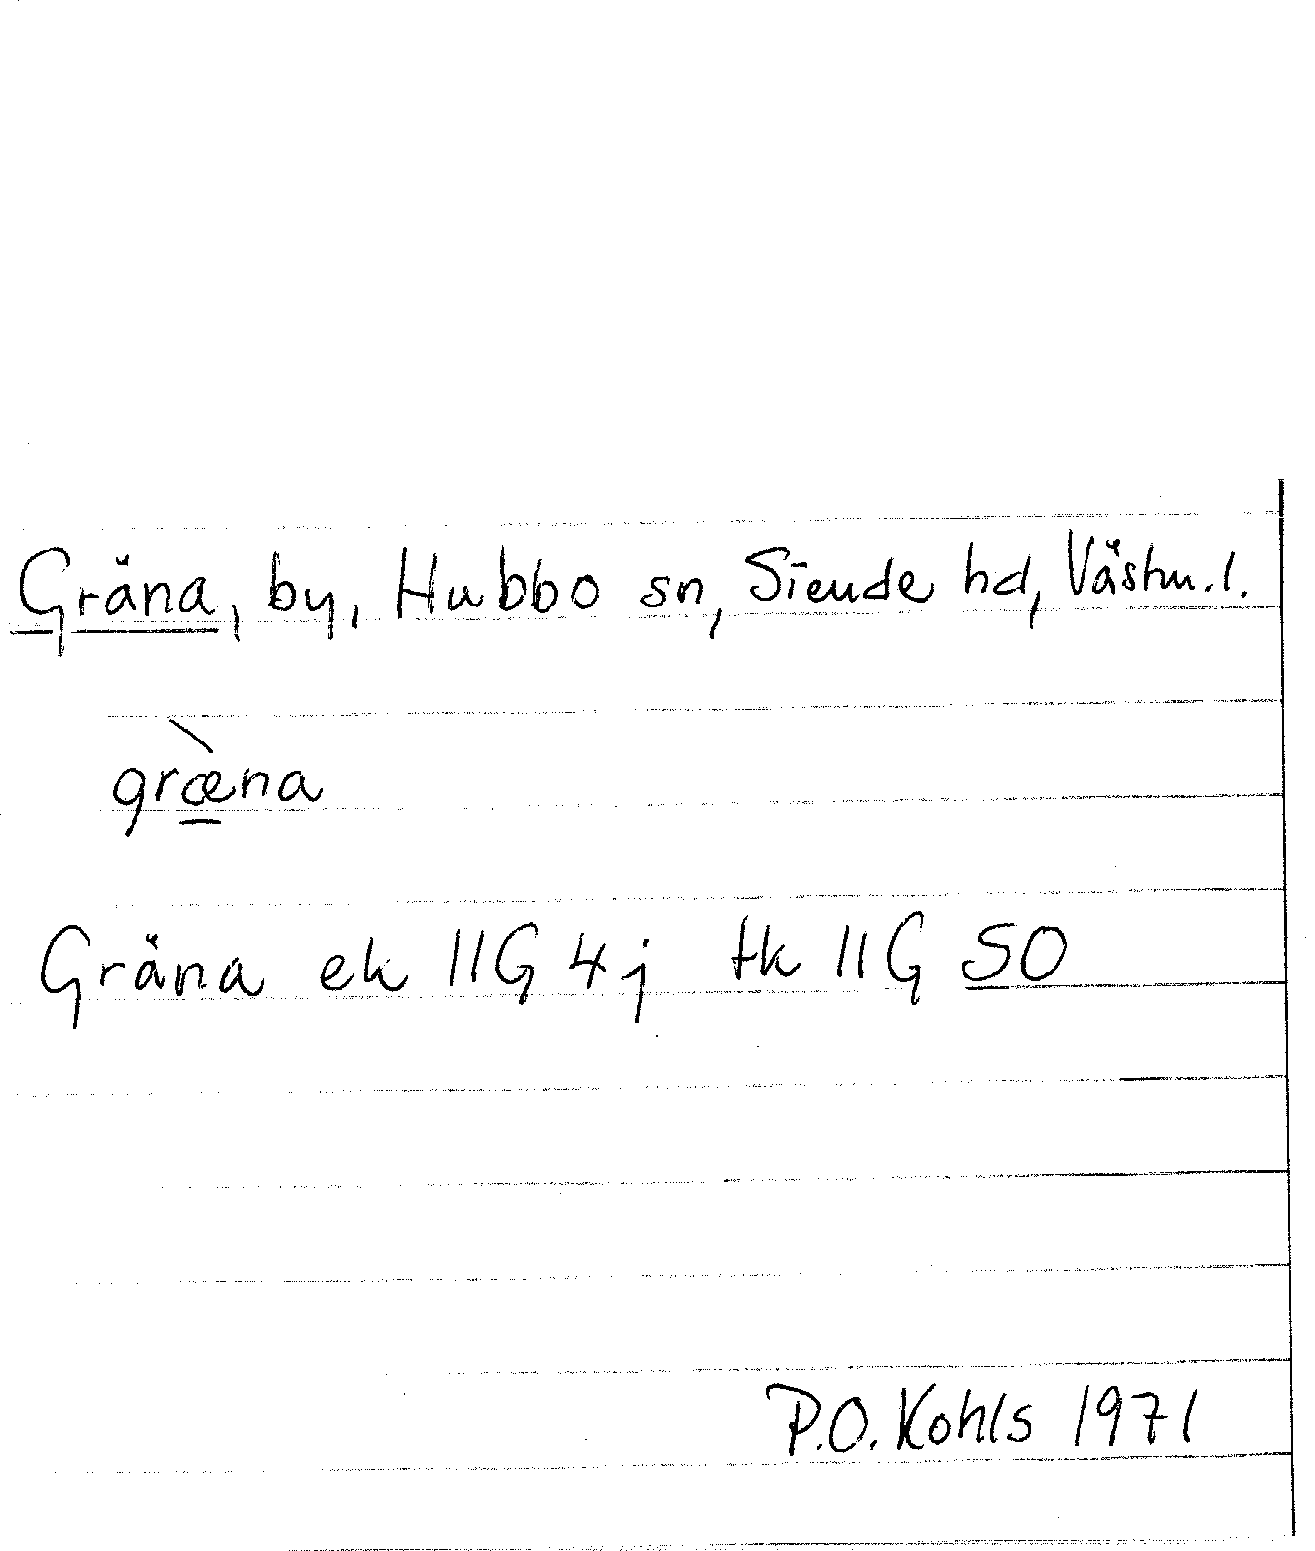 Gräna, by, Hubbo sn, Siende hd, Västm.l.
græ̠̀na
Gräna ek 11G 4j tk 11G SO
P.O. Kohls 1971